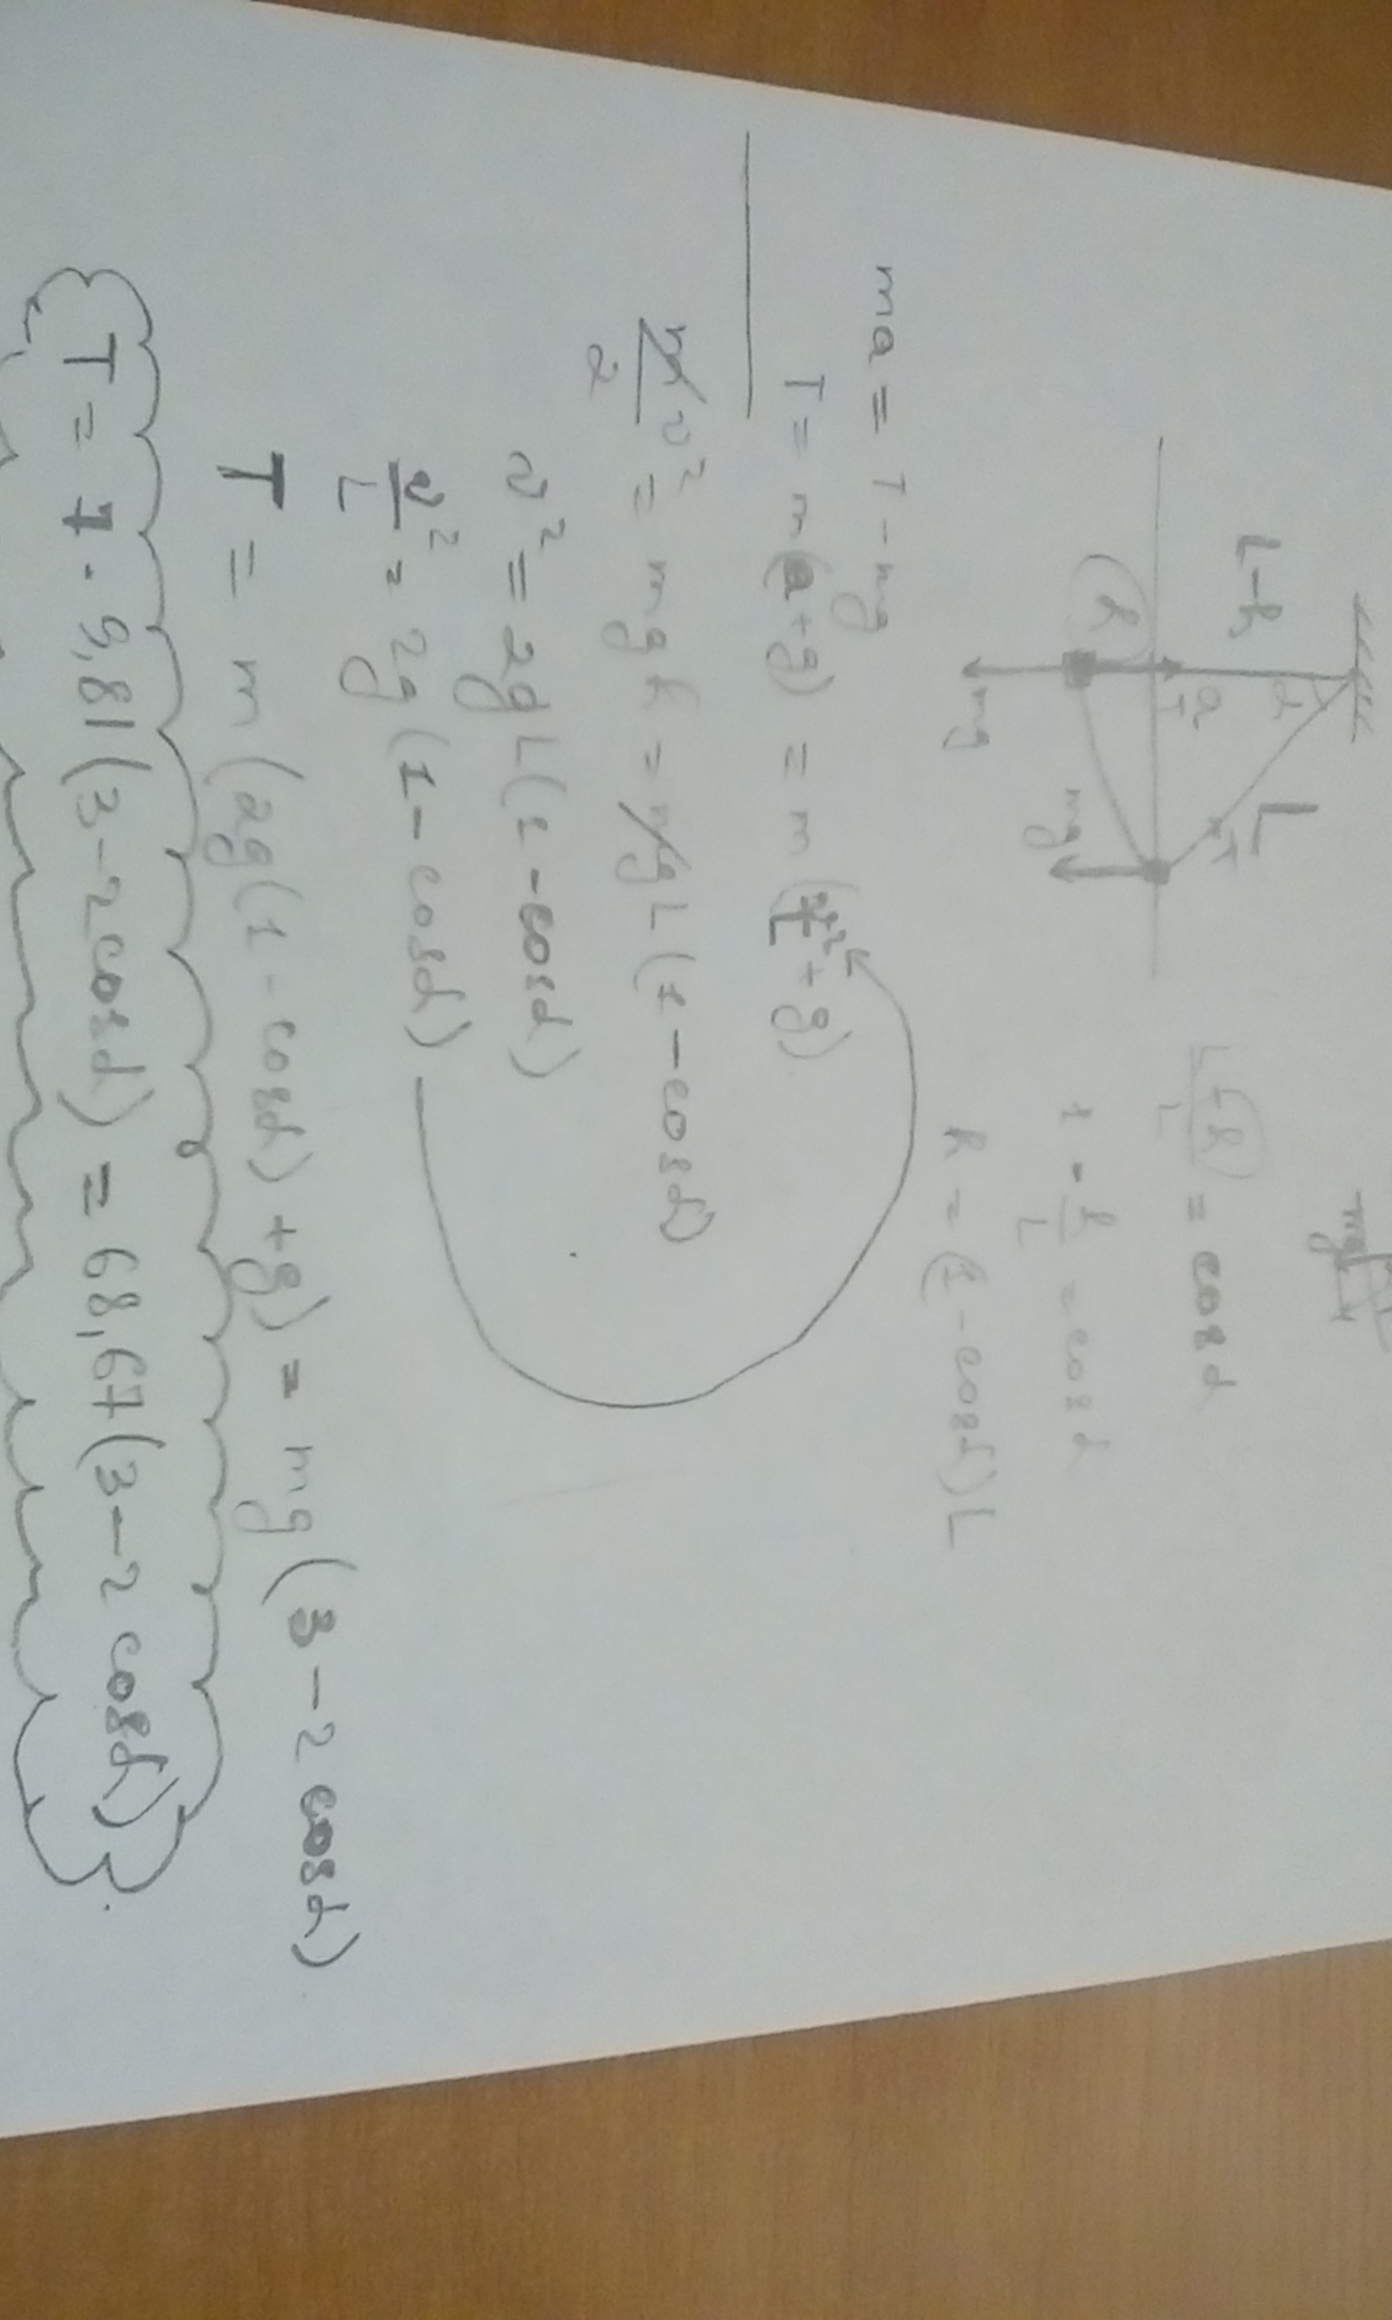 L-h
α
L
a
T
T
h
mg
mg
mg
(L-h)/L = cosα
1 - h/L = cosα
h = (1-cosα)L
ma = T - mg
T = m(a+g) = m(v²/L + g)
mv²/2 = mgh = mgL(1-cosα)
v² = 2gL(1-cosα)
v²/L = 2g(1-cosα)
T = m(2g(1-cosα)+g) = mg(3-2cosα)
T = 7·9,81(3-2cosα) = 68,67(3-2cosα)